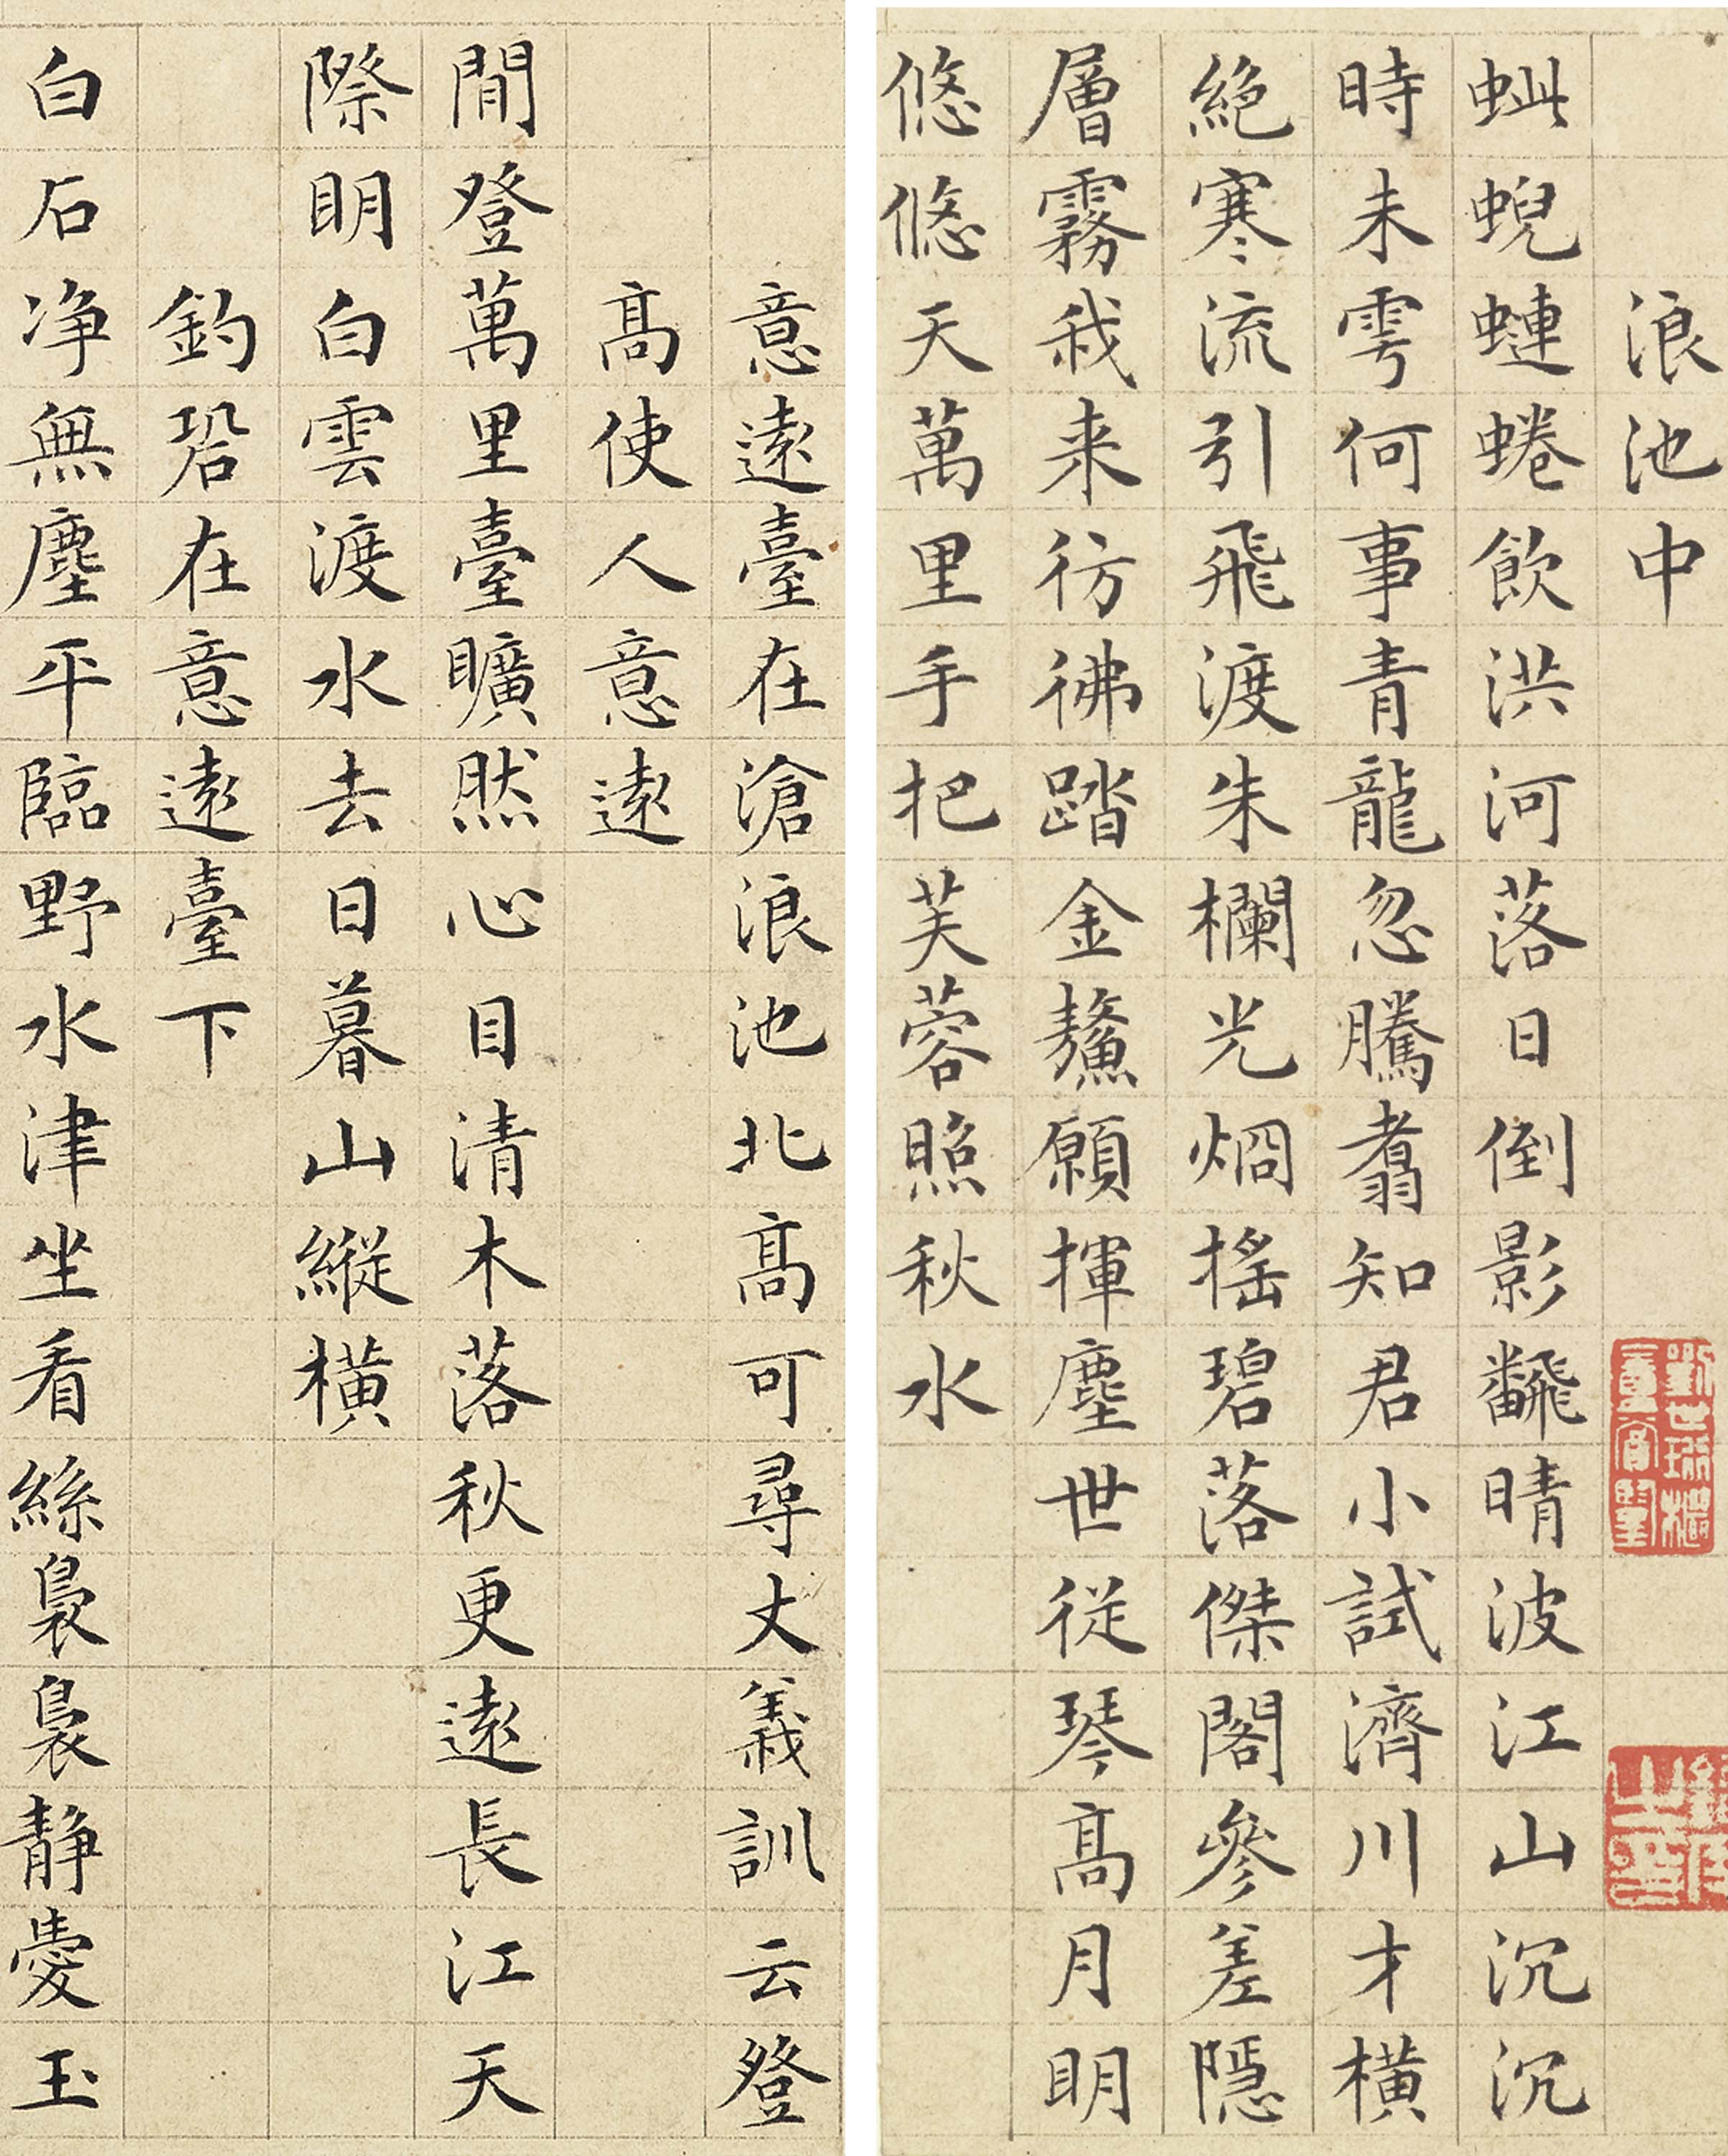 浪池中
蜿蜺蜷飲洪河落日倒影飜晴波江山沉沉
時未雩何事青龍忽騰翥知君小試濟川才橫
絕寒流引飛渡朱欄光烱搖碧落傑閣參差隱
層霧我来彷彿踏金鰲願揮塵世從琴高月明
悠悠天萬里手把芙蓉照秋水
意遠臺在滄浪池北高可尋丈義訓云登
高使人意遠
閒登萬里臺曠然心目清木落秋更遠長江天
際明白雲渡水去日暮山縱橫
釣䂬在意遠臺下
白石净無塵平臨野水津坐看絲裊裊靜愛玉